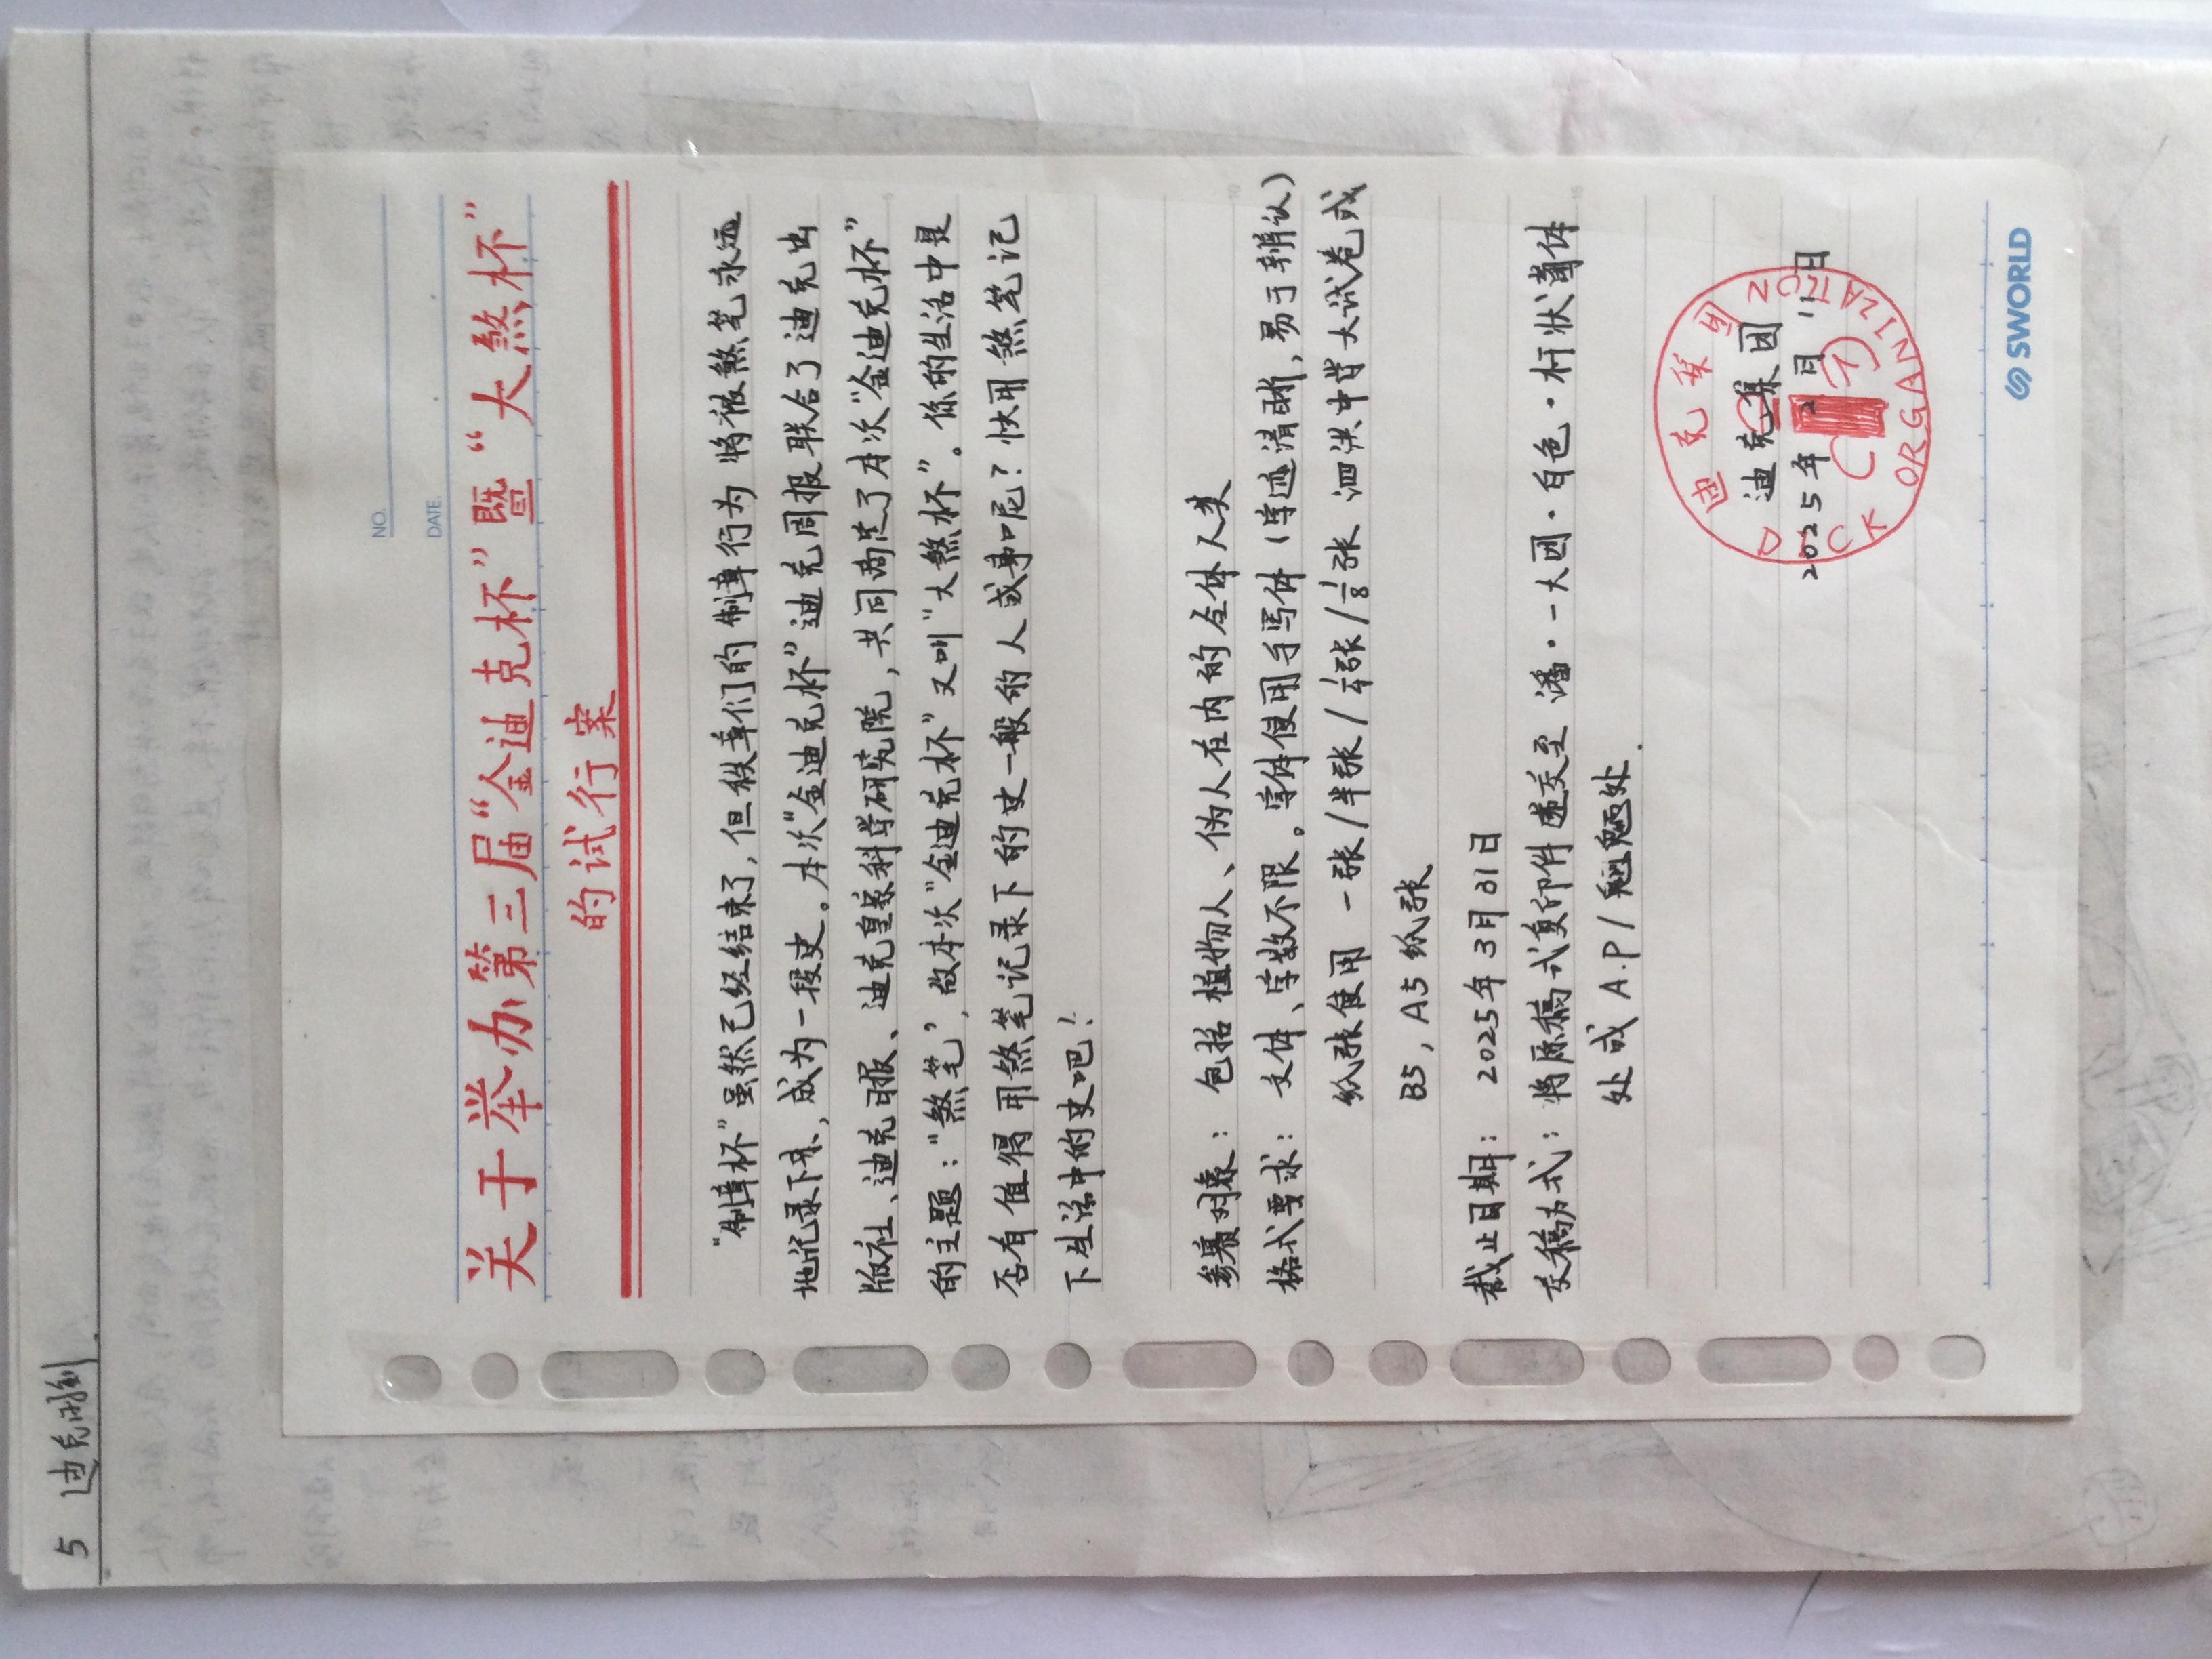 5 迪克周刊
NO.
DATE.
关于举办第三届“金迪克杯”暨“大煞杯”
的试行案
“制章杯”虽然已经结束了,但秩章们的制章行为 将被煞笔永远
地记录下来,成为一段史。本次“金迪克杯”迪克周报联合了迪克出
版社、迪克日报、迪克皇家科学研究院,共同商定了本次“金迪克杯”
的主题:“煞笔”,故本次“金迪克杯”又叫“大煞杯”。你的生活中是
否有值得用煞笔记录下的史一般的人或事呢?快用煞笔记
下生活中的史吧!
参赛对象: 包括植物人、伪人在内的全体人类
格式要求: 文体、字数不限。字体使用手写体(字迹清晰,易于辨认)
纸张使用 一张/半张/1/4张/1/8张 泗洪中学大试卷或
B5,A5纸张
截止日期: 2025年3月31日
交稿方式: 将原稿或复印件递交至 潘·一大团·白色·杆状菌体
处或 A.P/魍魉处.
迪克集团
迪克集团
2025年2月11日
DICK ORGANIZATION
SWORLD